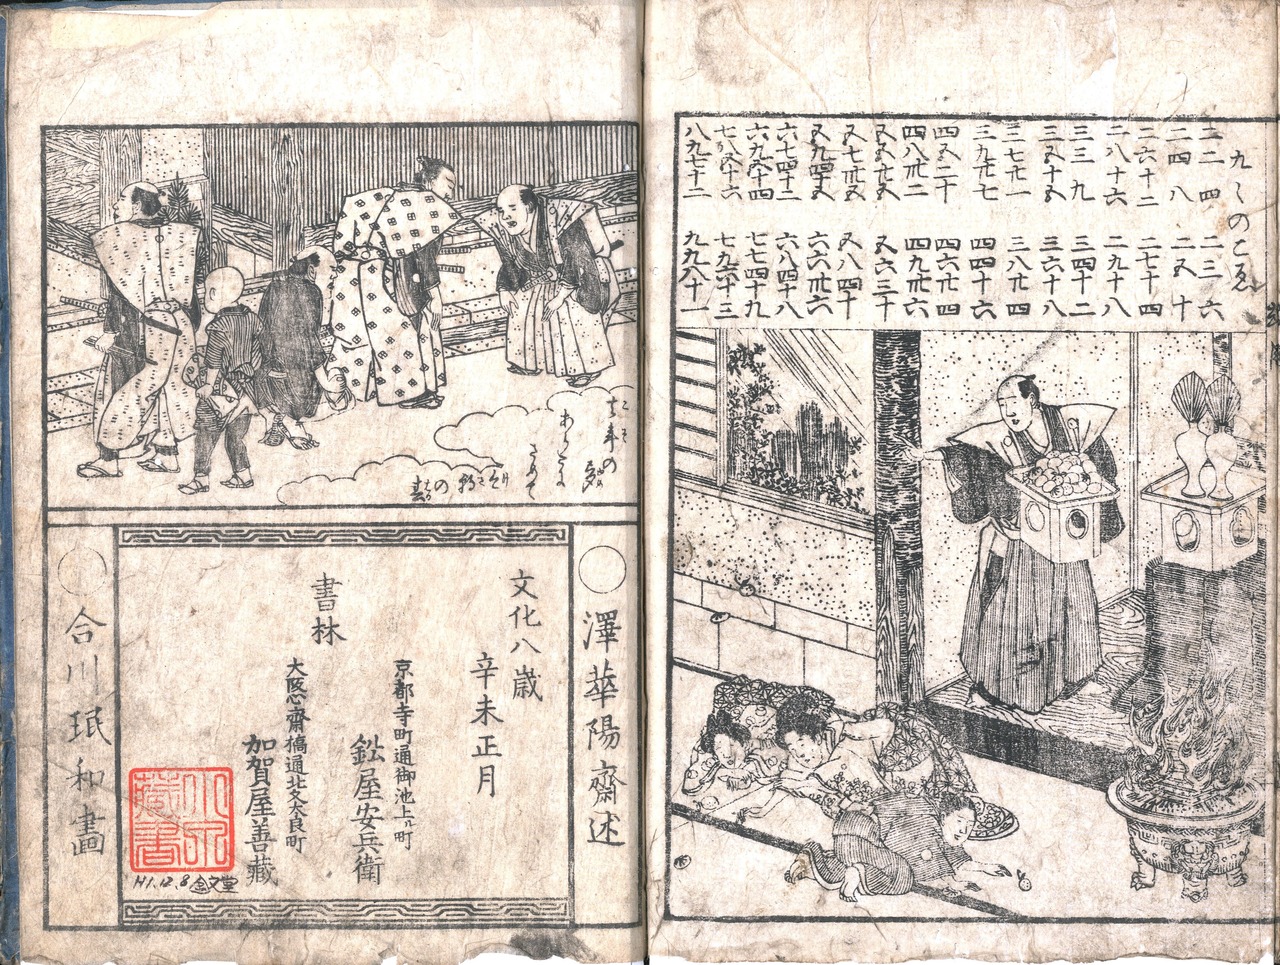 九〻のこゑ
二二四　二三六
二四八　二五十
二六十二　二七十四
二八十六　二九十八
三三九　三四十二
三五十五　三六十八
三七廿一　三八廿四
三九廿七　四四十六
四五二十　四六廿四
四八卅二　四九卅六
五五廿五　五六三十
五七卅五　五八四十
五九四十五　六六卅六
六七四十二　六八四十八
六九五十四　七七四十九
七八五十六　七九六十三
八九七十二　九九八十一
去年の
さめて
の春
澤華陽齋述
文化八歳
辛未正月
京都寺町通御池上ル町
鈆屋安兵衛
書林
大阪心齋橋通北久太良町
加賀屋善藏
合川珉和畫
藏書
H1.12.8